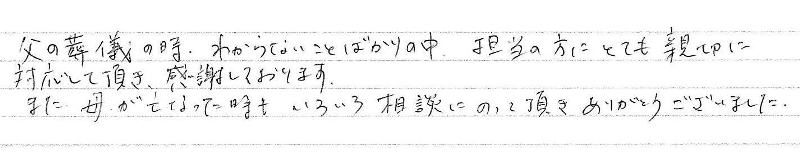 父の葬儀の時、わからないことばかりの中、担当の方にとても親切に
対応して頂き、感謝しております。
また 母が亡なった時も いろいろ相談にのって頂きありがとうございました。